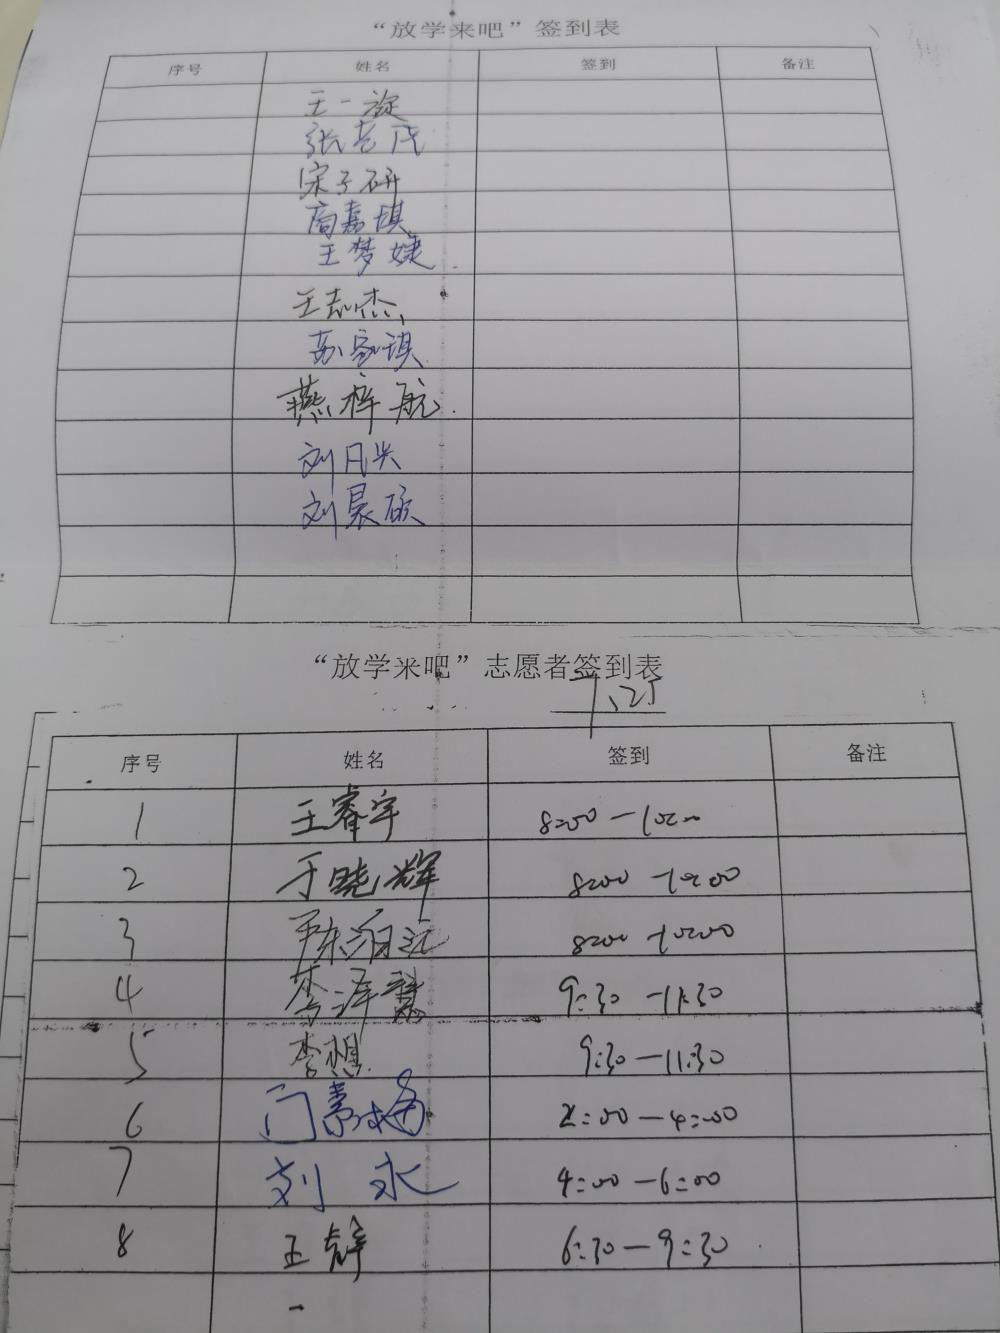 “放学来吧”签到表
序号 姓名 签到 备注
王一涵
张
宋子研
高嘉琪
王梦婕
王志杰
苏家琪
燕梓航
刘凡
刘晨硕
“放学来吧”志愿者签到表
7.25
序号 姓名 签到 备注
1 王睿宇 8:00—10:00
2 于晓辉 8:00—10:00
3 8:00—10:00
4 李泽慧 9:30—11:30
5 李想 9:30—11:30
6 门素梅 2:00—4:00
7 刘永 4:00—6:00
8 王静 6:30—9:30